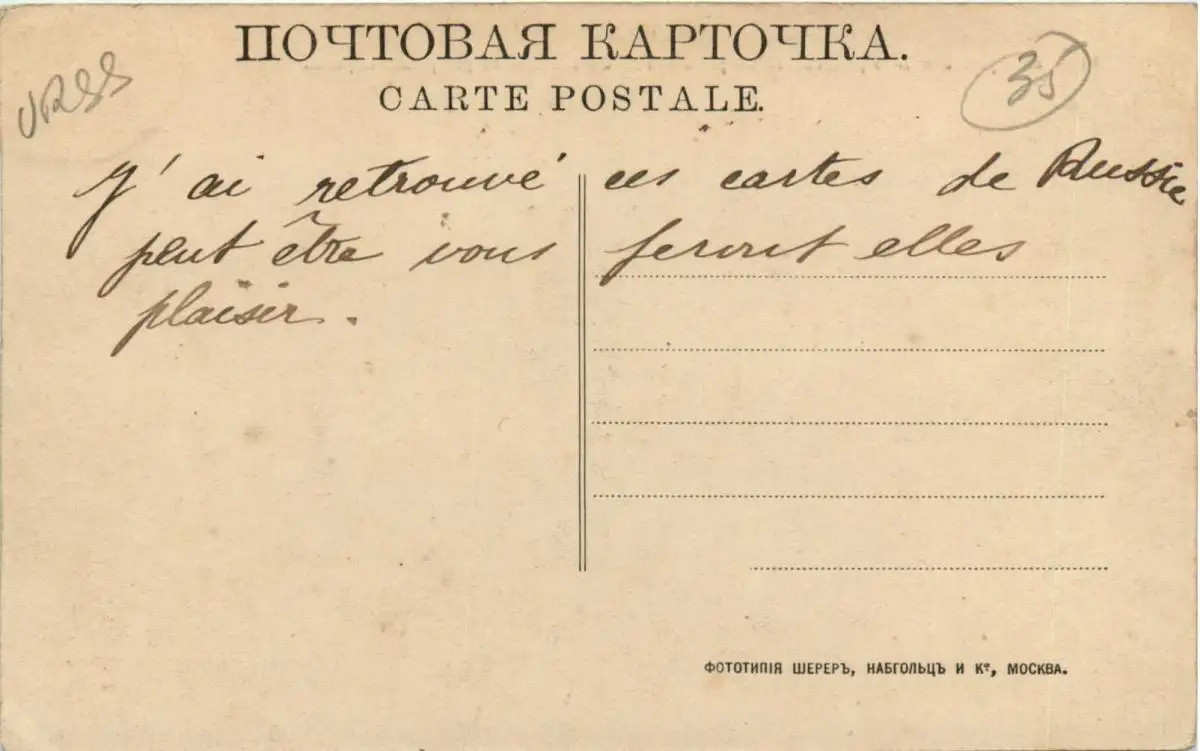 ПОЧТОВАЯ КАРТОЧКА.
CARTE POSTALE.
URSS
35
J'ai retrouvé ces cartes de Russie
peut être vous feront elles
plaisir.
ФОТОТИПІЯ ШЕРЕРЪ, НАБГОЛЬЦЪ И Кº, МОСКВА.